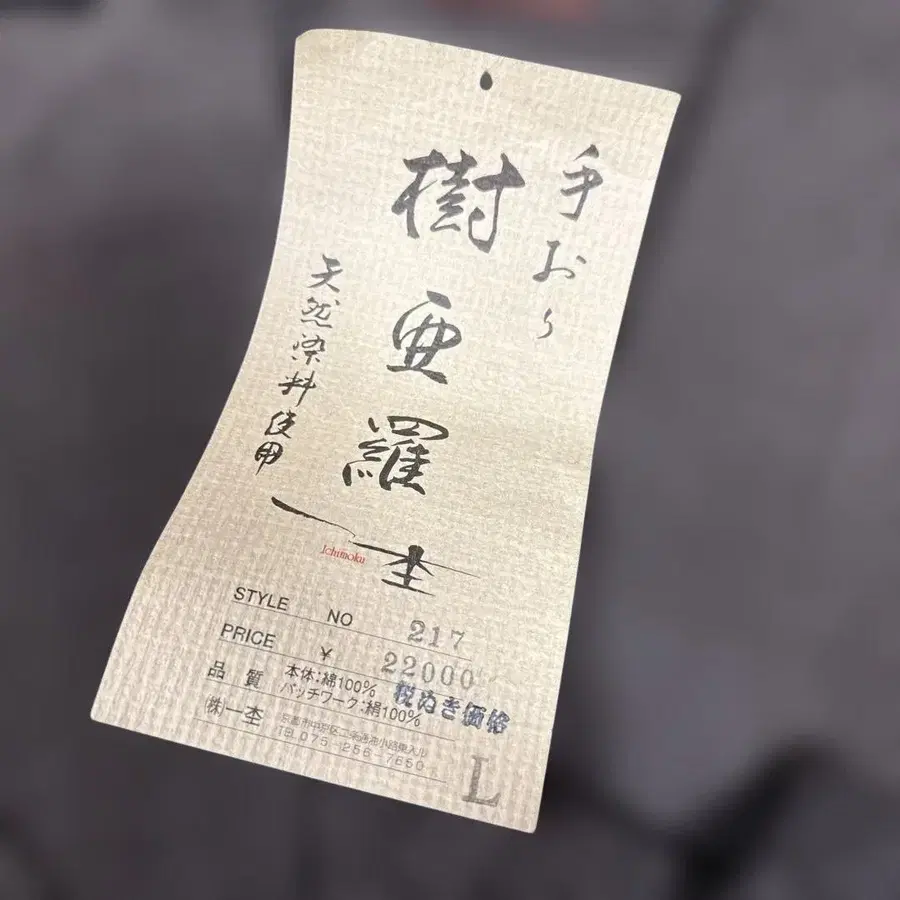 手おり
樹亜羅
天然染料使用
一杢
Ichimoku
STYLE NO 217
PRICE ¥ 22000
税ぬき価格
品質 本体:綿100%
パッチワーク:絹100%
㈱一杢
京都市中京区二条通油小路東入ル
TEL 075-256-7650
L